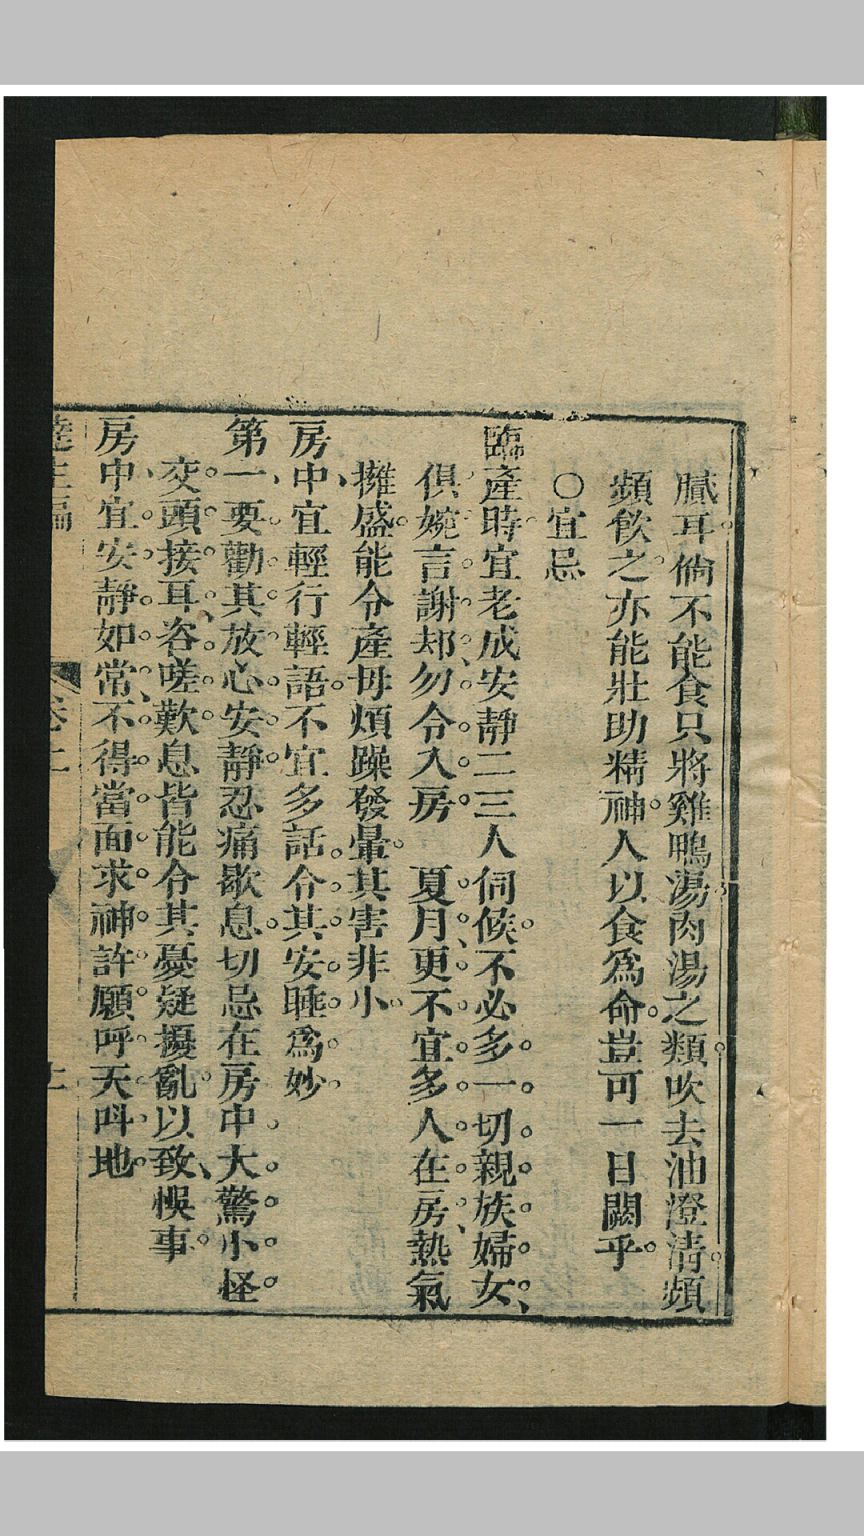 膩耳倘不能食只將雞鴨湯肉湯之類吹去油澄清頻
頻飲之亦能壯助精神人以食爲命豈可一日闕乎
○宜忌
臨產時宜老成安靜二三人伺候不必多一切親族婦女
俱婉言謝却勿令入房 夏月更不宜多人在房熱氣
擁盛能令產母煩躁發暈其害非小
房中宜輕行輕語不宜多話令其安睡爲妙
第一要勸其放心安靜忍痛歇息切忌在房中大驚小怪
交頭接耳咨嗟歎息皆能令其憂疑擾亂以致悞事
房中宜安靜如常不得當面求神許願呼天呌地
達生編
卷上